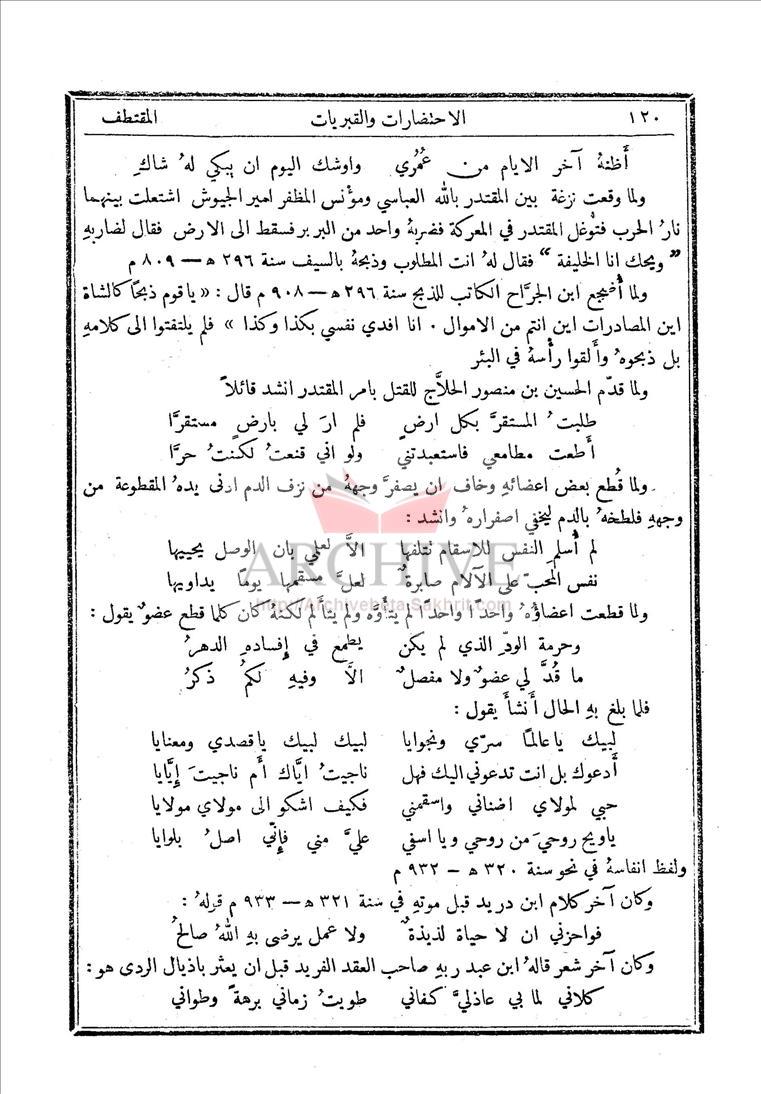 ١٢٠ الاحتضارات والقبريات المقتطف
أظنهُ آخر الايام من عُمُري واوشك اليوم ان يبكي لهُ شاكِ
ولما وقعت نزغة بين المقتدر بالله العباسي ومؤنس المظفر امير الجيوش اشتعلت بينهما
نارُ الحرب فتوغل المقتدر في المعركة فضربهُ واحد من البربر فسقط الى الارض فقال لضاربهِ
” ويحك انا الخليفة “ فقال لهُ انت المطلوب وذبحهُ بالسيف سنة ٢٩٦ ه — ٨٠٩ م
ولما أُضجع ابن الجرَّاح الكاتب للذبح سنة ٢٩٦ ه — ٩٠٨ م قال : « ياقوم ذبحًا كالشاة
اين المصادرات اين انتم من الاموال . انا افدي نفسي بكذا وكذا » فلم يلتفتوا الى كلامهِ
بل ذبحوه وألقوا رأسهُ في البئر
ولما قدّم الحسين بن منصور الحلاَّج للقتل بامر المقتدر انشد قائلاً
طلبتُ المستقرَّ بكل ارضٍ فلم ارَ لي بارضٍ مستقرَّا
أطعت مطامعي فاستعبدتني ولو اني قنعتُ لكنتُ حرَّا
ولما قُطع بعض اعضائهِ وخاف ان يصفرَّ وجههُ من نزف الدم ادنى يدهُ المقطوعة من
وجههِ فلطخهُ بالدم ليخفي اصفرارهُ وانشد :
لم أُسلم النفس للاسقام نتلفها الاَّ لعلمي بان الوصل يحييها
نفس المحَبّ على الآلام صابرةٌ لعلَّ مسقمها يومًا يداويها
ARCHIVE
http://Archivebeta.Sakhrit.com
ولما قطعت اعضاؤُهُ واحدًا واحدًا لم يتأوَّه ولم يتألم لكنهُ كان كلما قطع عضوٌ يقول :
وحرمة الودِّ الذي لم يكن يطمع في إفسادهِ الدهرُ
ما قُدَّ لي عضوٌ ولا مفصلٌ الاَّ وفيهِ لكمُ ذكرُ
فلما بلغ بهِ الحال أنشأَ يقول :
لبيك ياعالمًا سرّي ونجوايا لبيك لبيك ياقصدي ومعنايا
أَدعوك بل انت تدعوني اليك فهل ناجيتُ ايَّاك أم ناجيتَ إيَّايا
حبي لمولاي اضناني واسقمني فكيف اشكو الى مولاي مولايا
ياويح روحيَ من روحي ويا اسفي عليَّ مني فإنّي اصلُ بلوايا
ولفظ انفاسهُ في نحو سنة ٣٢٠ ه – ٩٣٢ م
وكان آخر كلام ابن دريد قبل موتهِ في سنة ٣٢١ ه — ٩٣٣ م قولهُ :
فواحزني ان لا حياة لذيذةٌ ولا عمل يرضى بهِ اللهُ صالحُ
وكان آخر شعر قالهُ ابن عبد ربهِ صاحب العقد الفريد قبل ان يعثر باذيال الردى هو :
كلاني لما بي عاذليَّ كفاني طويتُ زماني برهةً وطواني